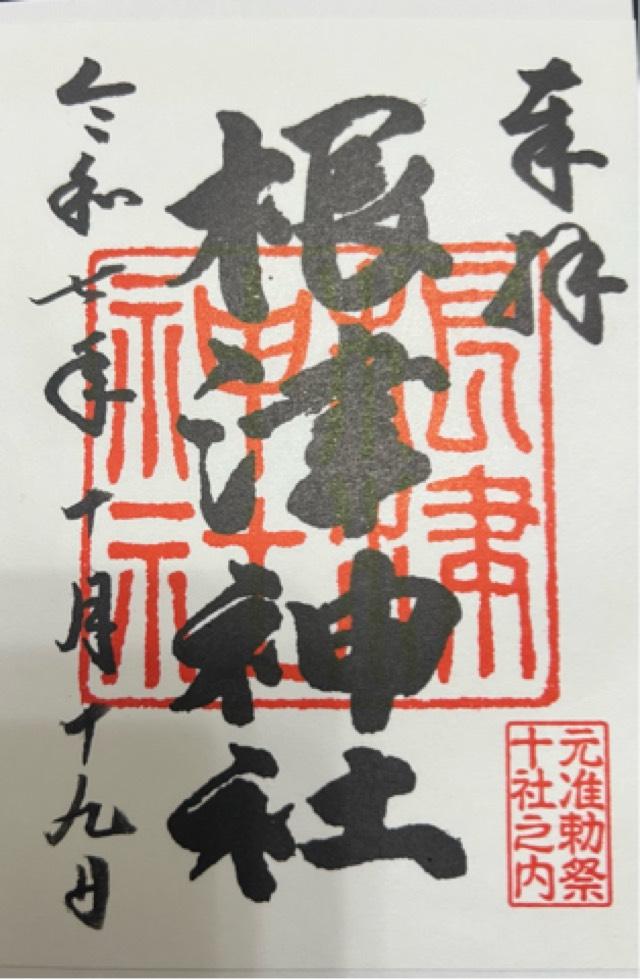 奉拝
根津神社
根津神社
元准勅祭
十社之内
令和七年十月十九日